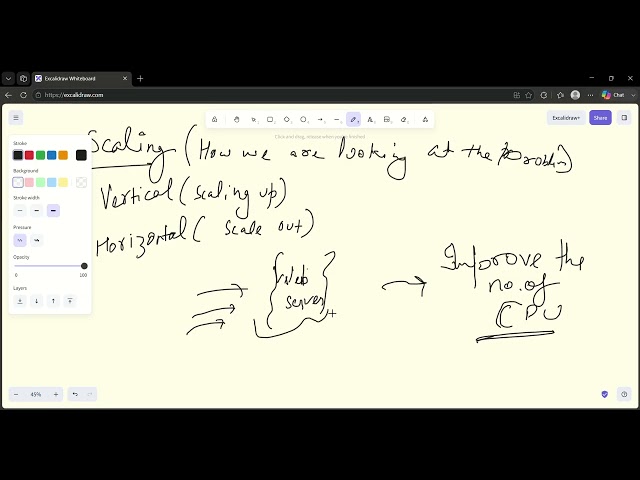 Excalidraw Whiteboard
https://excalidraw.com
Chat
Click and drag, release when you're finished
Excalidraw+
Share
Stroke
Background
Stroke width
Pressure
Opacity
0 100
Layers
45%
Scaling (How we are looking at the problem)
Vertical (scaling up)
Horizontal ( scale out)
Web
server
Improve the
no. of
CPU